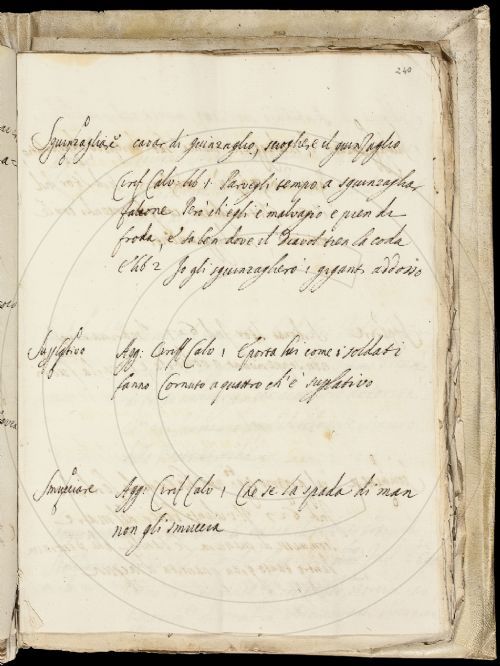 240
Sguinzagliare cavar di guinzaglio, sciogliere il guinzaglio
Cirif. Calv. lib. 1. Parvegli tempo a sguinzagliar
falcone Però ch'egli è malvagio e pien di
froda, e sa ben dove il Diavol tien la coda
e lib 2 Io gli sguinzaglierò i giganti addosso
Agg: Ciriff Calv. 1. E porta lui come i soldati
fanno Cornuto a quattro ch'è
Smucciare Agg: Cirif Calv. 1. Che se la spada di man
non gli smuccia